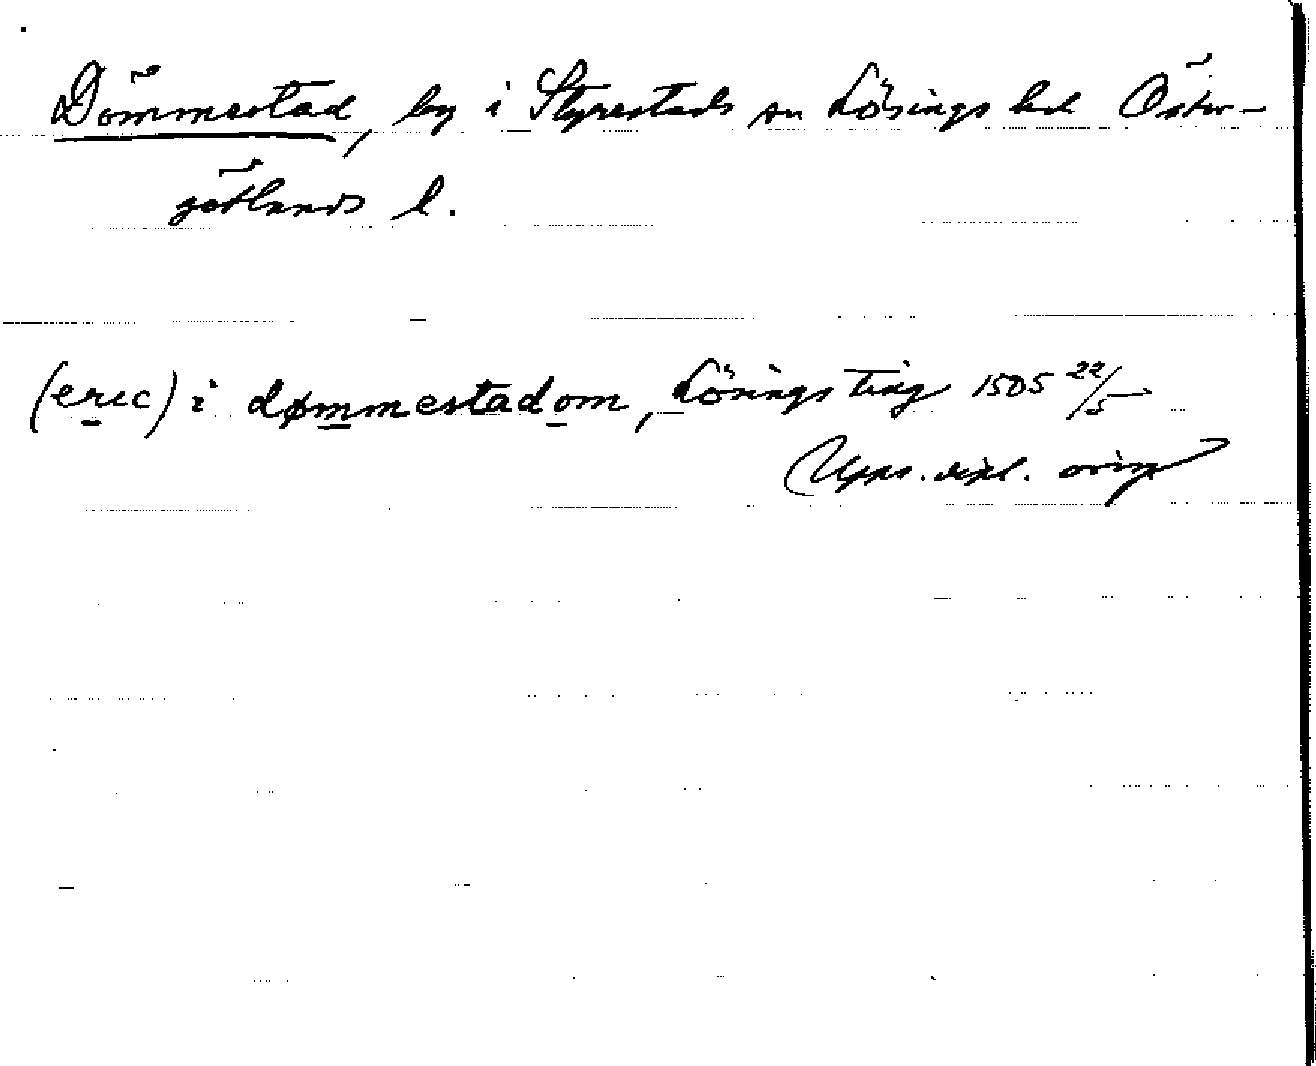 Dömmestad, by i Styrestads sn Lösings hd Öster-
götlands l.
(eric) i dømmestadom, Lösings ting 1505 22/5
Upps. dipl. orig